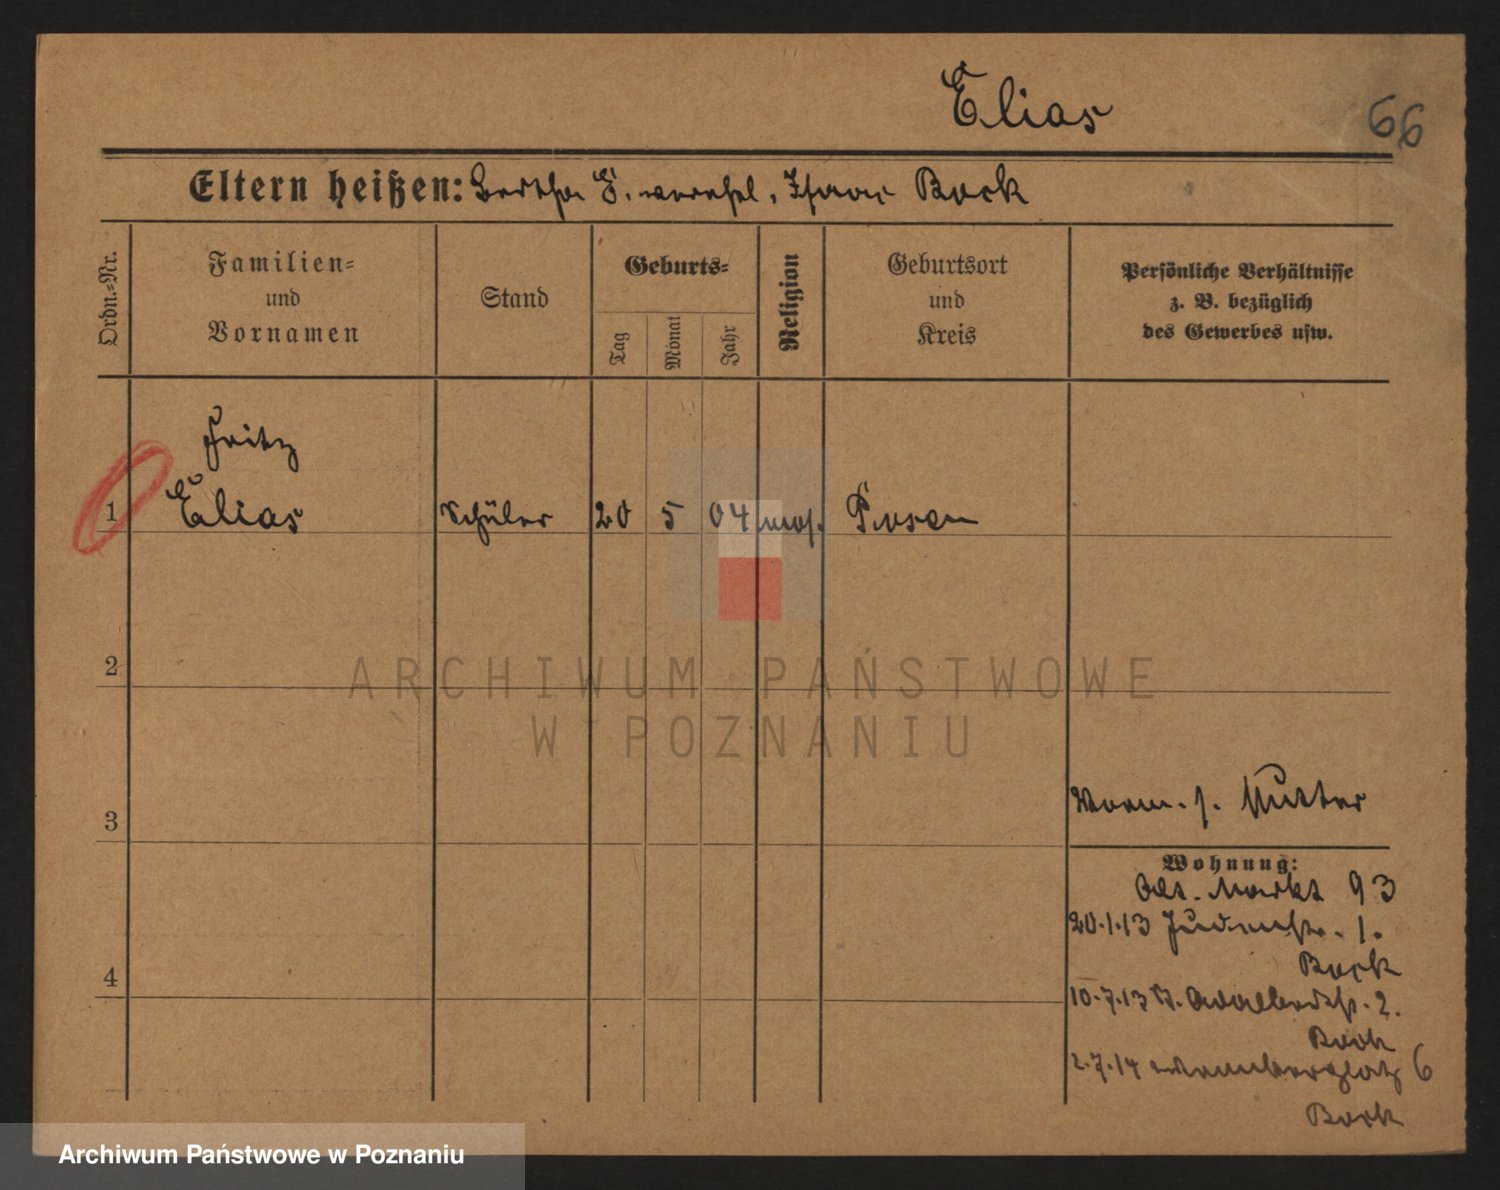 Elias
66
Eltern heißen: Bertha E. verehel. Isaac Bock
Ordn.-Nr.
Familien-
und
Vornamen
Stand
Geburts-
Tag
Monat
Jahr
Religion
Geburtsort
und
Kreis
Persönliche Verhältnisse
z. B. bezüglich
des Gewerbes usw.
Fritz
1 Elias Schüler 20 5 04 mos. Posen
2
ARCHIWUM PAŃSTWOWE
W POZNANIU
3
Vorm. s. Mutter
Wohnung:
Alt. Markt 93
20.1.13 Judenstr. 1.
Bock
4
10.7.13 St. Adalbertstr. 2.
Bock
2.7.14 6
Bock
Archiwum Państwowe w Poznaniu